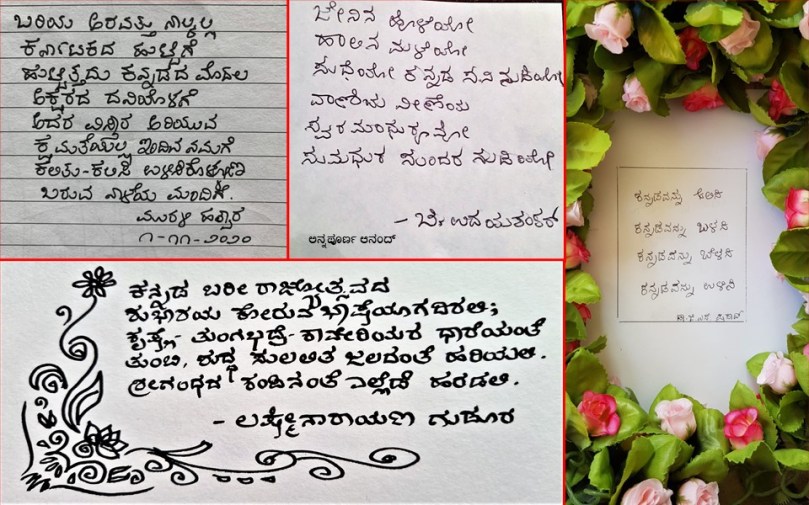 ಬರಿಯ ಅರವತ್ತು ನಾಲ್ಕಲ್ಲ
ಕರ್ನಾಟಕದ ಹುಟ್ಟಿಗೆ
ಹುಟ್ಟಿತ್ತದು ಕನ್ನಡದ ಮೊದಲ
ಅಕ್ಷರದ ದನಿಯೊಳಗೆ
ಅದರ ವಿಸ್ತಾರ ಅರಿಯುವ
ಕ್ಷಮತೆಯಿಲ್ಲ ಇಂದಿನ ನಮಗೆ
ಕಲಿತು-ಕಲಿಸಿ ಬಳಸಿಕೊಳ್ಳೋಣ
ಬರುವ ನಾಳೆಯ ಮಂದಿಗೆ.
ಮುರಳಿ ಹತ್ವಾರ
೧-೧೧-೨೦೨೦
ಜೇನಿನ ಹೊಳೆಯೋ
ಹಾಲಿನ ಮಳೆಯೋ
ಸುಧೆಯೋ ಕನ್ನಡ ಸವಿ ನುಡಿಯೋ
ವಾಣಿಯ ವೀಣೆಯ
ಸ್ವರ ಮಾಧುರ್ಯವೋ
ಸುಮಧುರ ಸುಂದರ ನುಡಿಯೋ
- ಚಿ. ಉದಯಶಂಕರ್
ಅನ್ನಪೂರ್ಣ ಆನಂದ್
ಕನ್ನಡ ಬರೀ ರಾಜ್ಯೋತ್ಸವದ
ಶುಭಾಶಯ ಕೋರುವ ಭಾಷೆಯಾಗದಿರಲಿ;
ಕೃಷ್ಣೆ- ತುಂಗಭದ್ರೆ- ಕಾವೇರಿಯರ ಧಾರೆಯಂತೆ
ತುಂಬಿ, ಶುದ್ಧ ಸುಲಲಿತ ಜಲದಂತೆ ಹರಿಯಲಿ.
ಶ್ರೀಗಂಧದ ಕಂಪಿನಂತೆ ಎಲ್ಲೆಡೆ ಹರಡಲಿ.
- ಲಕ್ಷ್ಮೀನಾರಾಯಣ ಗುಡೂರ
ಕನ್ನಡವನ್ನು ಕಲಿಸಿ
ಕನ್ನಡವನ್ನು ಬಳಸಿ
ಕನ್ನಡವನ್ನು ಬೆಳೆಸಿ
ಕನ್ನಡವನ್ನು ಉಳಿಸಿ